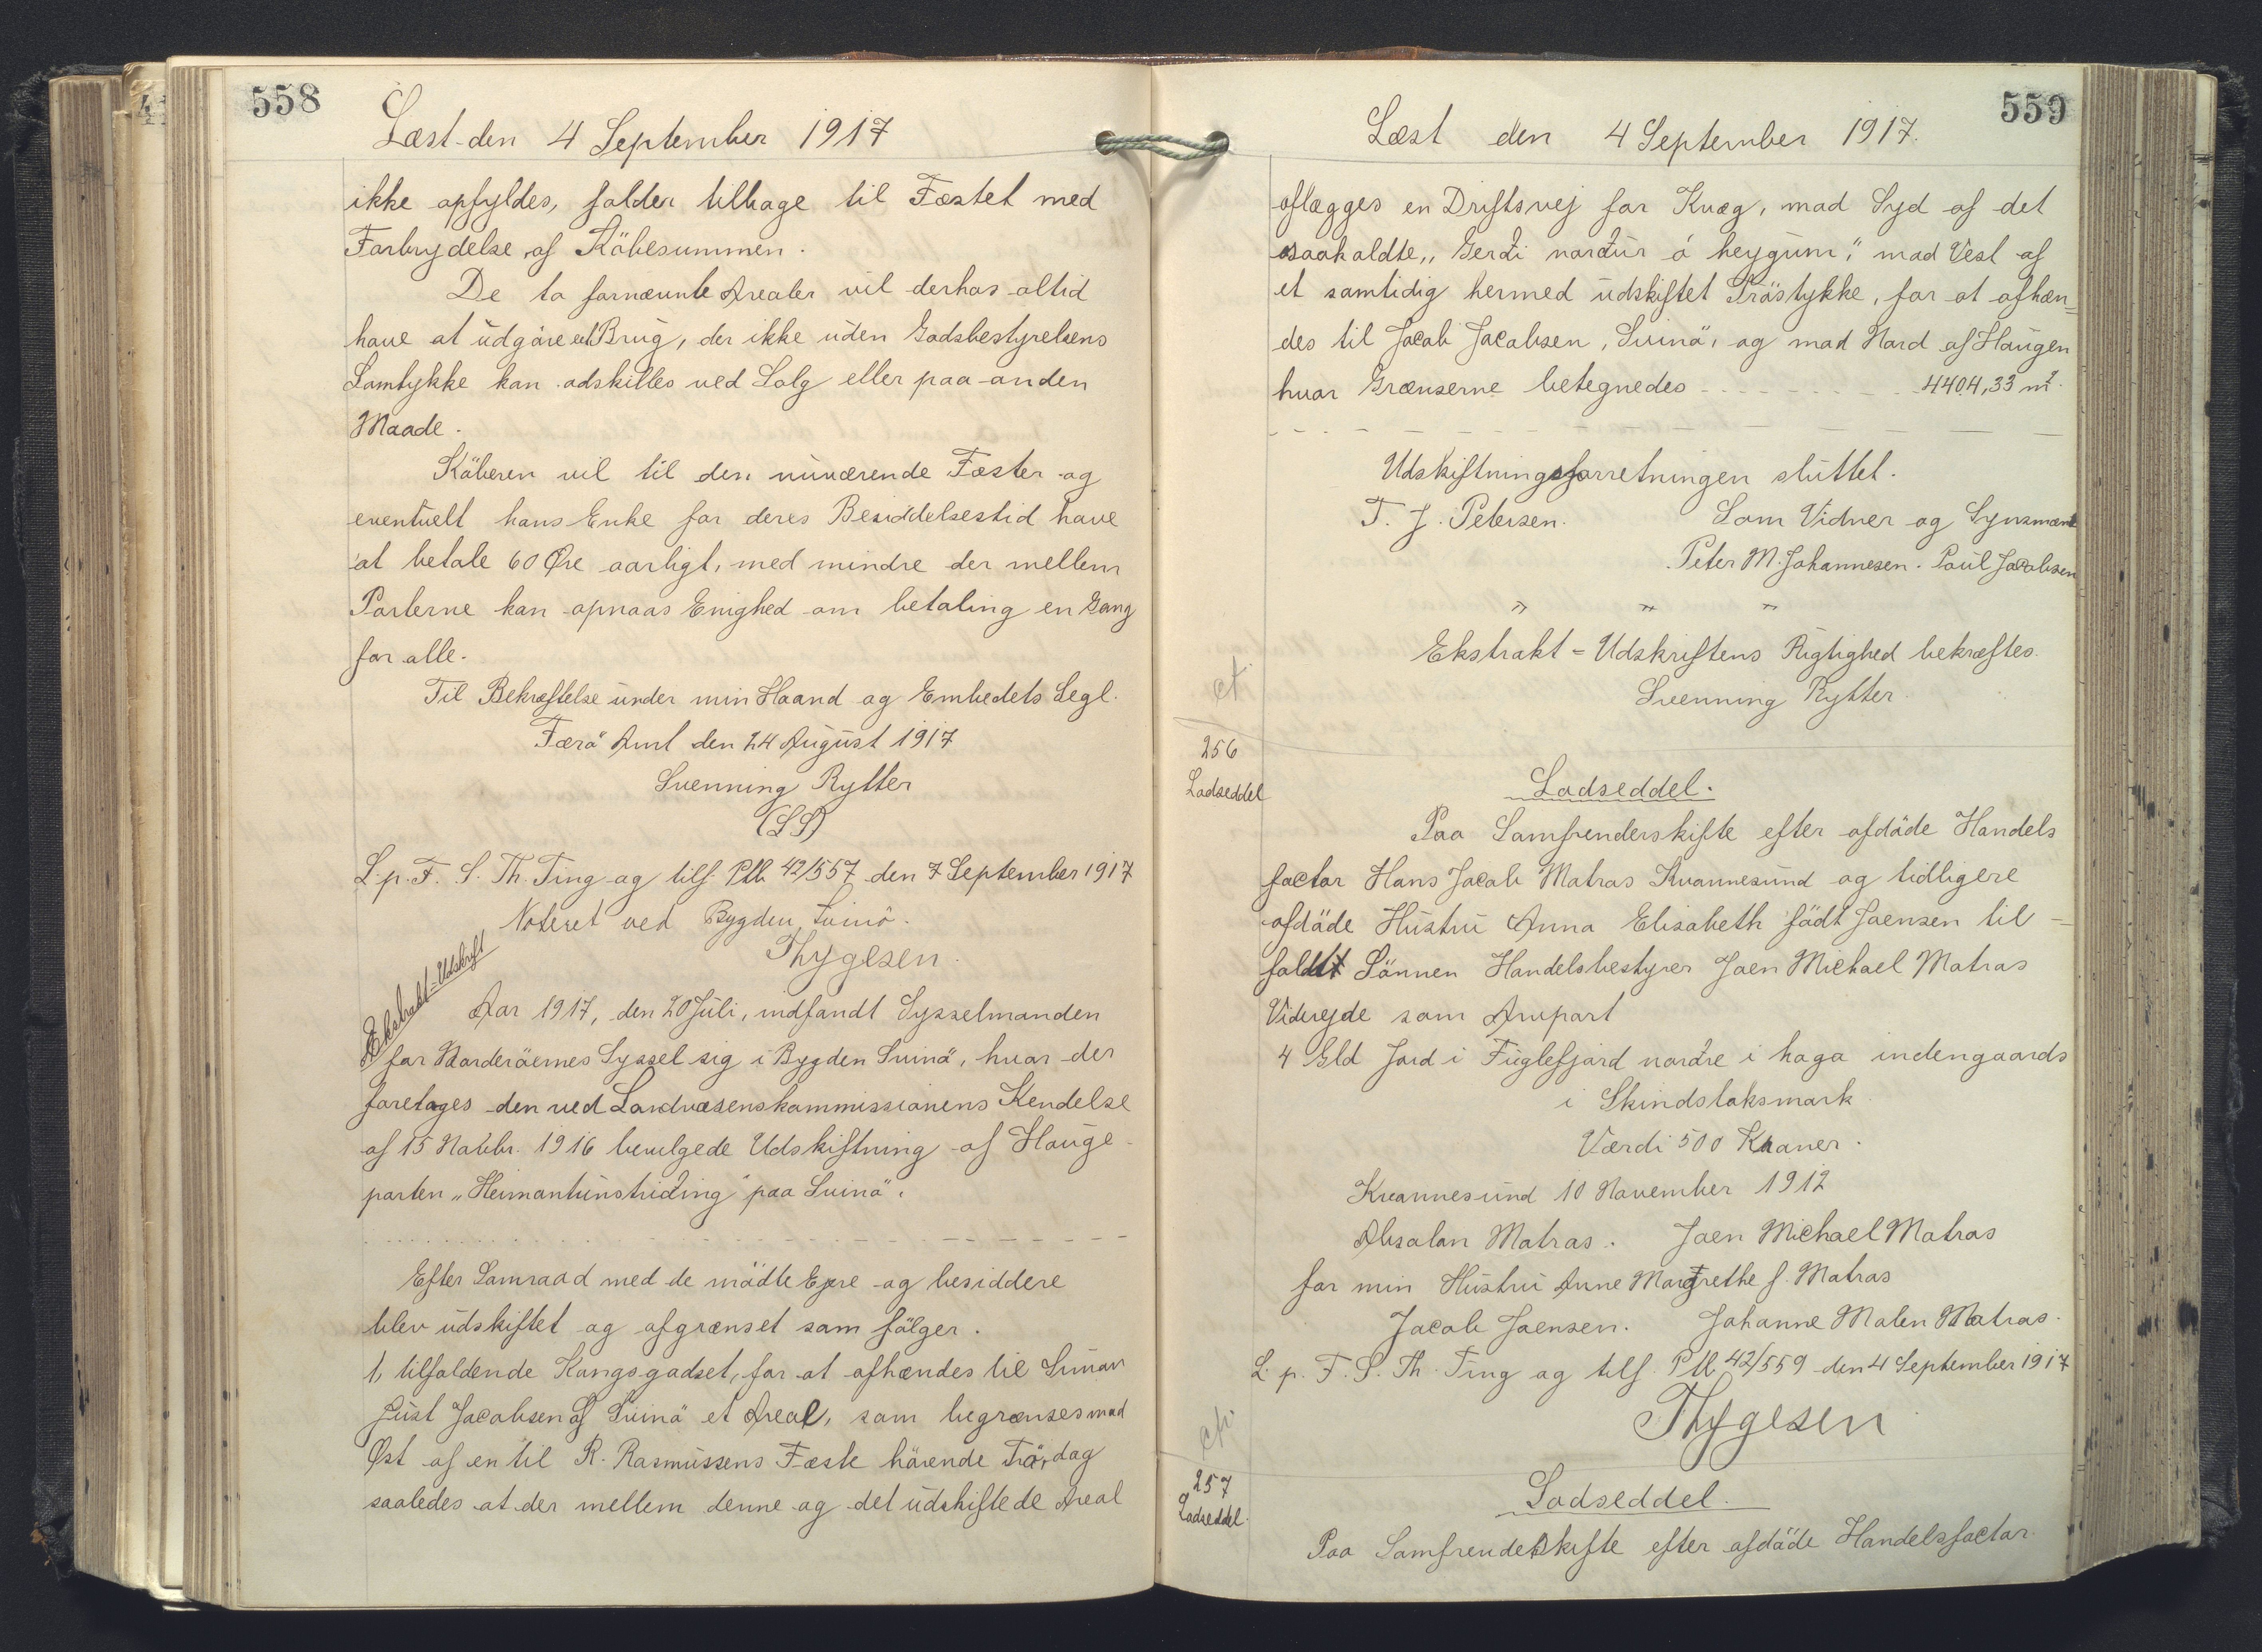 558
Læst den 4 September 1917
ikke opfyldes, falder tilbage til Fæstet med
Forbrydelse af Köbesummen.
De to fornævnte Arealer vil derhos altid
have at udgöre eet Brug, der ikke uden Godsbestyrelsens
Samtykke kan adskilles ved Salg eller paa anden
Maade.
Köberen vil til den nuværende Fæster og
eventuelt hans Enke for deres Besiddelsestid have
at betale 60 Øre aarligt, med mindre der mellem
Parterne kan opnaas Enighed om betaling en Gang
for alle.
Til Bekræftelse under min Haand og Embedets Segl.
Færö Amt den 24 August 1917
Svenning Rytter
(LS)
L. p. F. S. Th. Ting og tilf. Ptb. 42/557 den 7 September 1917
Noteret ved Bygden Svinö.
Thygesen.
Ekstrakt=Udskrift
Aar 1917, den 20 Juli, indfandt Sysselmanden
for Norderöernes Syssel sig i Bygden Svinö, hvor der
foretages den ved Landvæsenskommissionens Kendelse
af 15 Novbr. 1916 bevilgede Udskiftning af Hauge-
parten „Heimantúnstriding" paa Svinö.
Efter Samraad med de mödte Ejere og besiddere
blev udskiftet og afgrænset som fölger.
1, tilfaldende Kongsgodset, for at afhændes til Simon
Just Jacobsen af Svinö et Areal, som begrænses mod
Øst af en til R. Rasmussens Fæste hörende Trö, dog
saaledes at der mellem denne og det udskiftede Areal
559
Læst den 4 September 1917.
aflægges en Driftsvej for Kvæg, mod Syd af det
saakaldte „Gerdi nordur á heygum", mod Vest af
et samtidig hermed udskiftet Tröstykke, for at afhæn=
des til Jacob Jacobsen, Svinö, og mod Nord af Haugen
hvor Grænserne betegnedes - - - - - - - - 4404,33 m².
Udskiftningsforretningen sluttet.
T. J. Petersen. Som Vidner og Synsmænd
Peter M. Johannesen. Poul Jacobsen
" " "
Ekstrakt=Udskriftens Rigtighed bekræftes.
Svenning Rytter.
256
Lodseddel
Lodseddel.
Paa Samfrenderskifte efter afdöde Handels
factor Hans Jacob Matras Kvannesund og tidligere
afdöde Hustru Anna Elisabeth födt Joensen til=
faldt Sönnen Handelsbestyrer Joen Michael Matras
Viderejde som Arvpart
4 Gld Jord i Fuglefjord nordre i haga indengaards
i Skindstaksmark
Værdi 500 Kroner.
Kvannesund 10 November 1912
Absalon Matras. Joen Michael Matras
for min Hustru Anne Margrethe f. Matras
Jacob Joensen. Johanne Malen Matras.
L. p. F. S. Th. Ting og tilf. Ptb. 42/559 den 4 September 1917
Thygesen
257
Lodseddel.
Lodseddel.
Paa Samfrenderskifte efter afdöde Handelsfactor